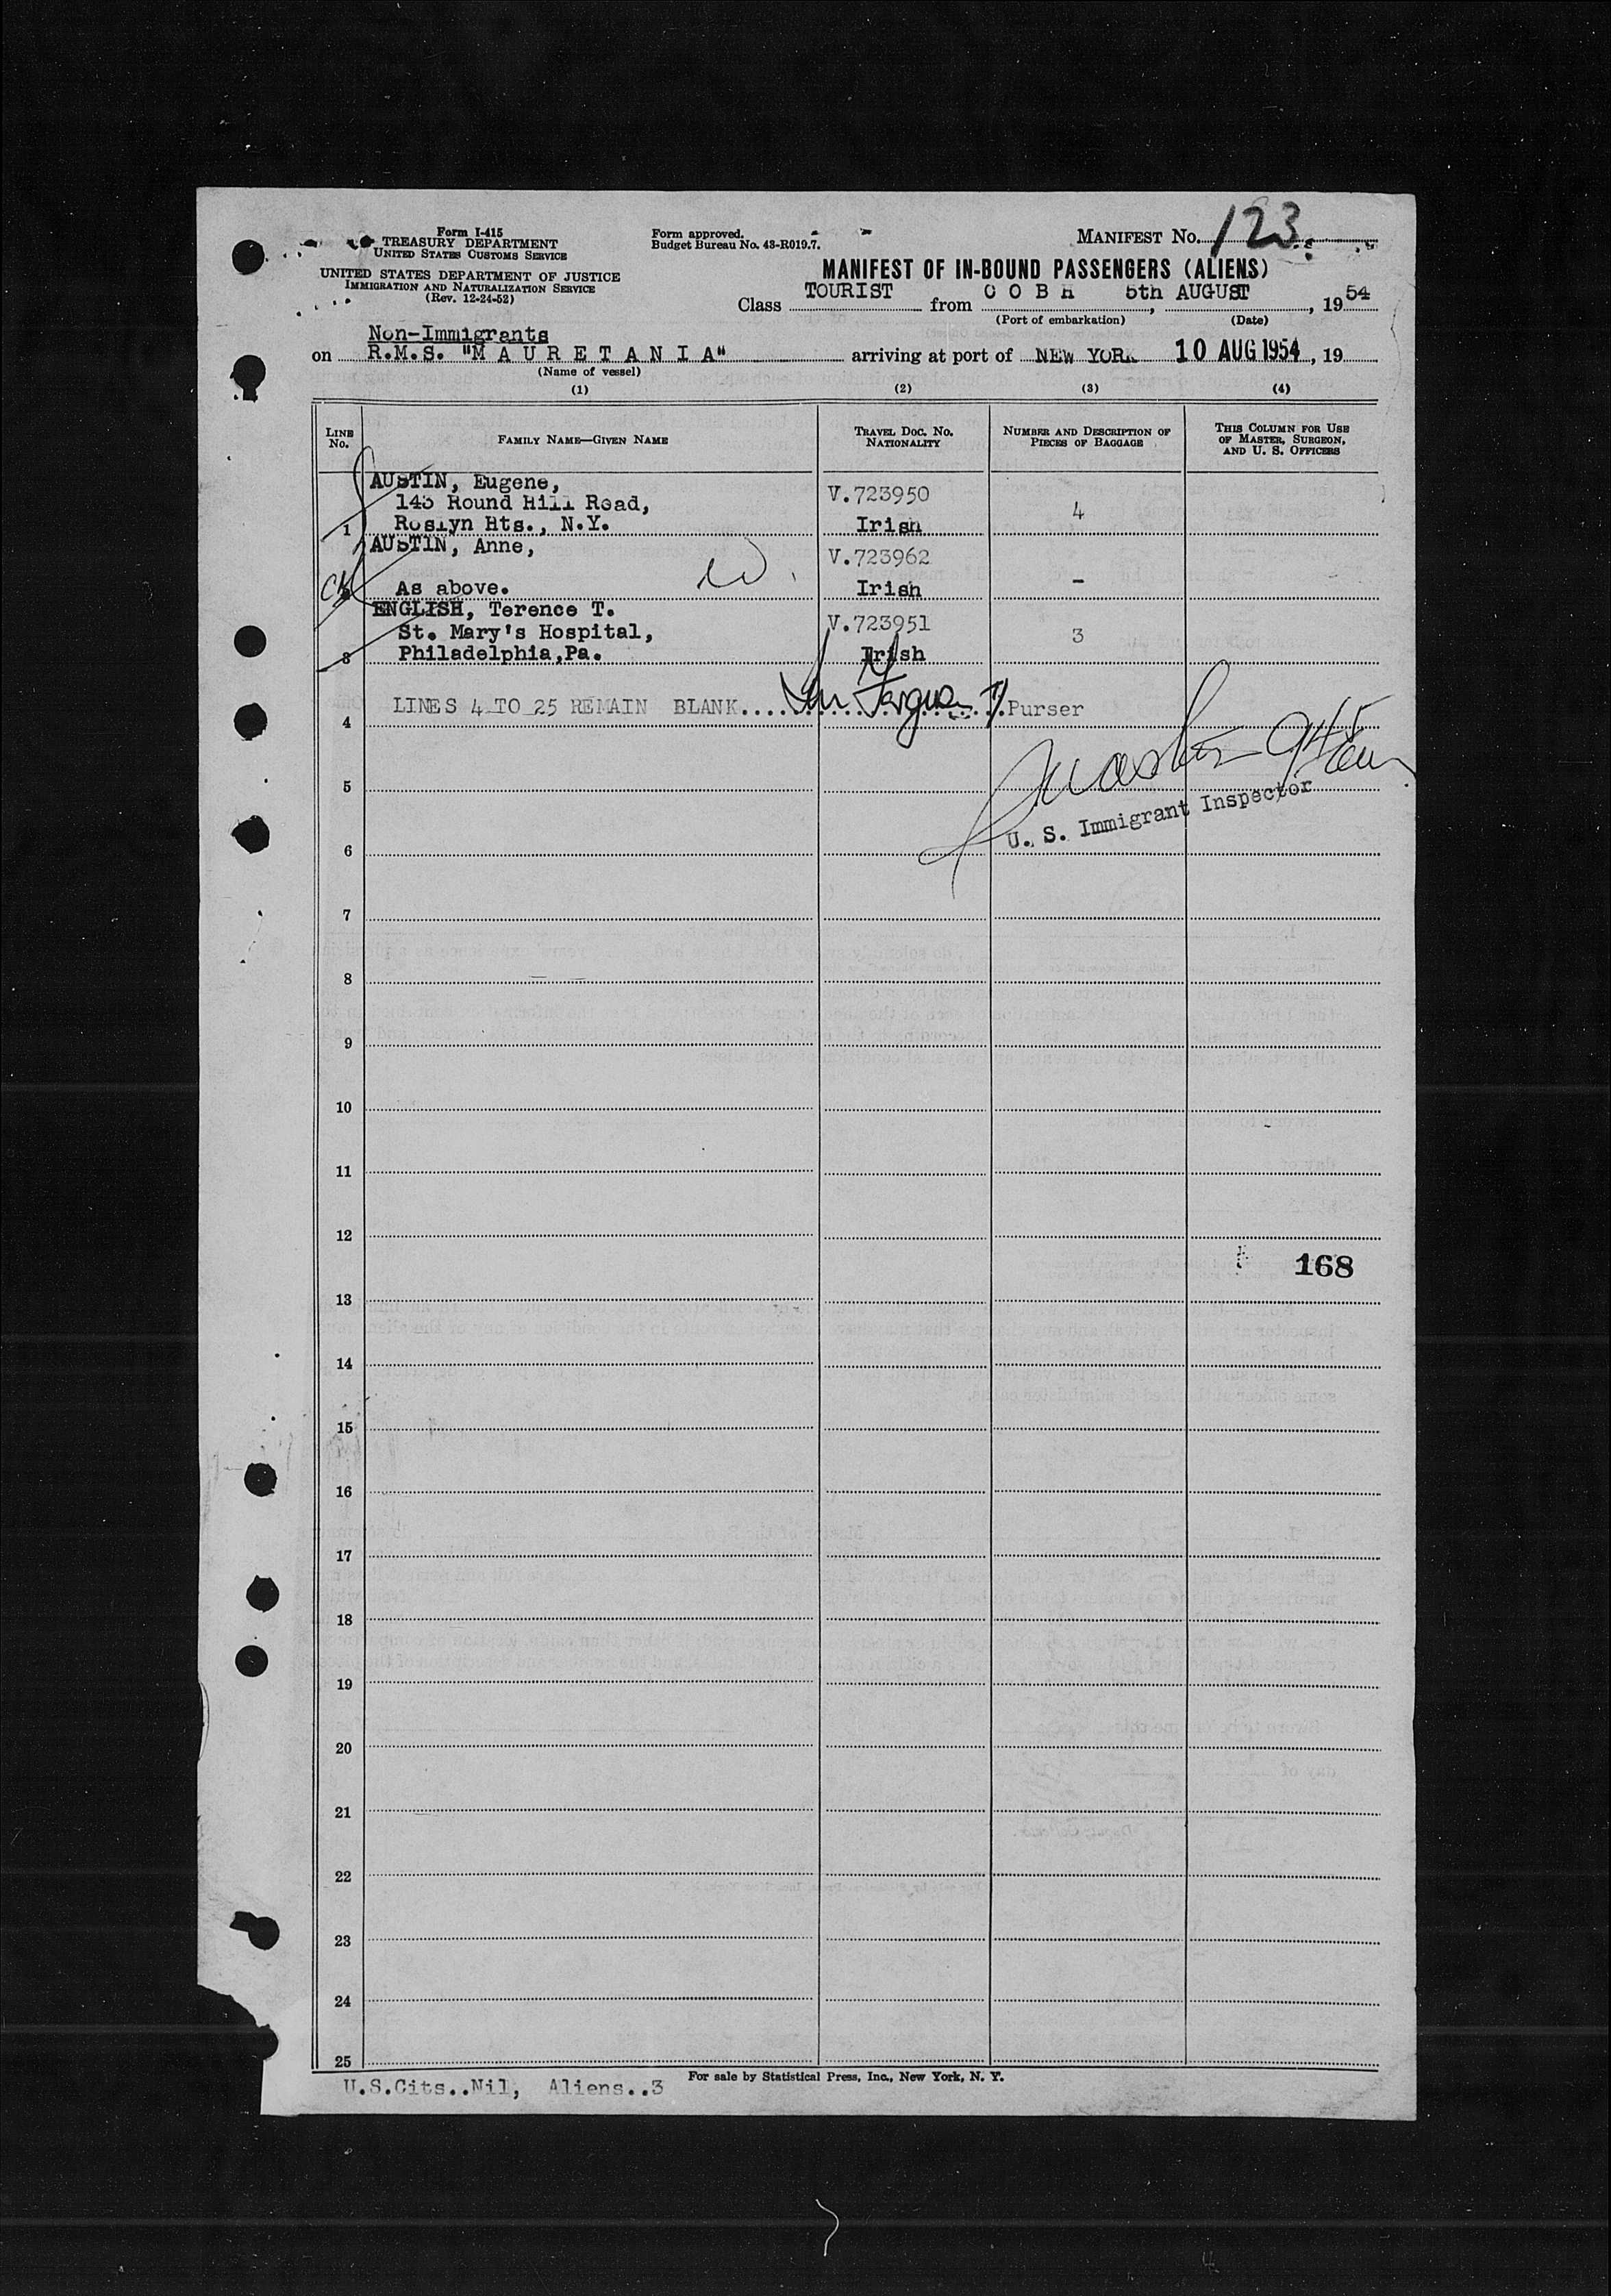 Form I-415
TREASURY DEPARTMENT
UNITED STATES CUSTOMS SERVICE
UNITED STATES DEPARTMENT OF JUSTICE
IMMIGRATION AND NATURALIZATION SERVICE
(Rev. 12-24-52)
Form approved.
Budget Bureau No. 43-R019.7.
MANIFEST No. 123
MANIFEST OF IN-BOUND PASSENGERS (ALIENS)
Class TOURIST from C O B H 5th AUGUST, 1954
(Port of embarkation) (Date)
Non-Immigrants
on R.M.S. "M A U R E T A N I A" arriving at port of NEW YORK 10 AUG 1954, 19
(Name of vessel)
(1) (2) (3) (4)
LINE No. FAMILY NAME—GIVEN NAME TRAVEL DOC. NO. NATIONALITY NUMBER AND DESCRIPTION OF PIECES OF BAGGAGE THIS COLUMN FOR USE OF MASTER, SURGEON, AND U. S. OFFICERS
AUSTIN, Eugene,
143 Round Hill Road, V.723950 4
1 Roslyn Hts., N.Y. Irish
AUSTIN, Anne, V.723962
As above. Irish –
ENGLISH, Terence T.
St. Mary's Hospital, V.723951 3
3 Philadelphia,Pa. Irish
4 LINES 4 TO 25 REMAIN BLANK.... Purser
5
U. S. Immigrant Inspector
6
7
8
9
10
11
12
168
13
14
15
16
17
18
19
20
21
22
23
24
25
U.S.Cits..Nil, Aliens..3
For sale by Statistical Press, Inc., New York, N. Y.